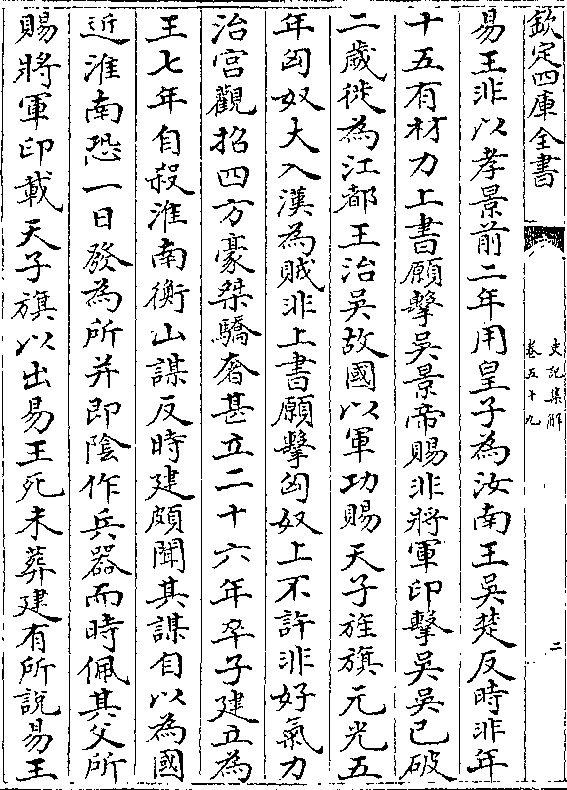 欽定四庫全書
史記集解
卷五十九
二
易王非以孝景前二年用皇子為汝南王吳楚反時非年
十五有材力上書願擊吳景帝賜非將軍印擊吳吳已破
二歲徙為江都王治吳故國以軍功賜天子旌旗元光五
年匈奴大入漢為賊非上書願擊匈奴上不許非好氣力
治宮觀招四方豪桀驕奢甚立二十六年卒子建立為
王七年自殺淮南衡山謀反時建頗聞其謀自以為國
近淮南恐一日發為所并即陰作兵器而時佩其父所
賜將軍印載天子旗以出易王死未葬建有所說易王